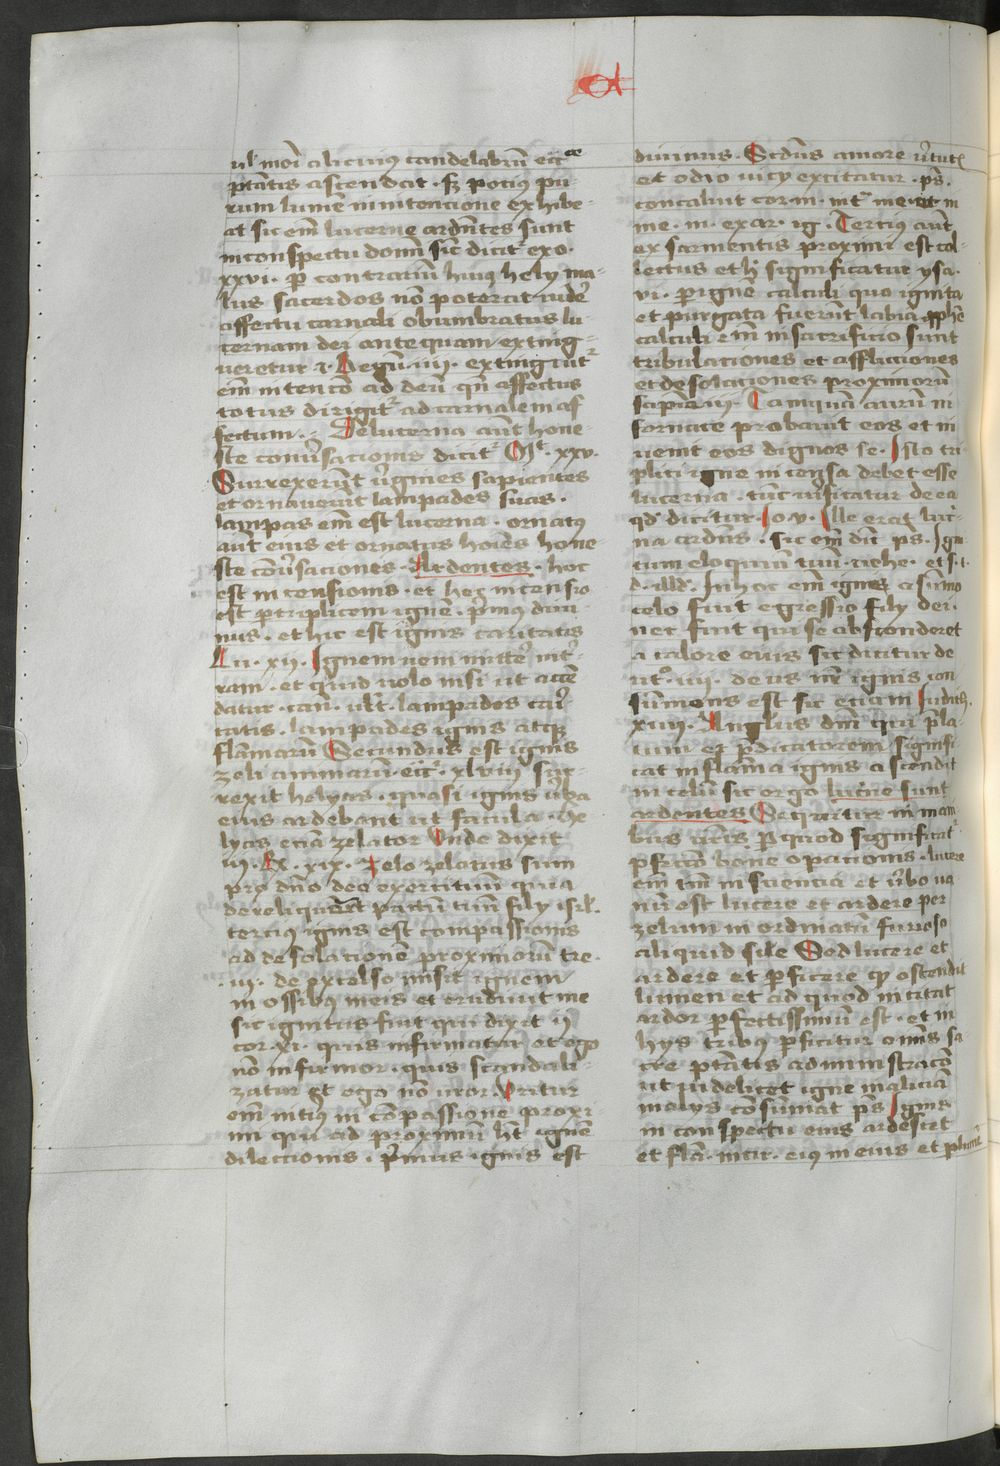 ul moi alicui9 candelabru ecc
ptatis ascendat . sz potius pu-
rum lume in intencione exhibe-
at sic em lucerne ardentes sunt
in conspectu domini sic dicit exo.
xxvi. p contrarium hui9 hely ma-
lus sacerdos no poterat uide
affectu carnali obumbratus lu-
cernam dei antequam exting-
ueretur i Regu iii. extinguit
em intenco ad deu qn affectus
totus dirigit ad carnalem af
fectum. De lucerna aut hone-
ste conusacionis dicit Mt. xxv.
Surrexerut uirgines sapientes
et ornauerunt lampades suas.
lampas em est lucerna . ornatus
aut eius et ornatus hoies hone-
ste conusaciones . Ardentes . hoc
est in censionis . et hec incensio
est p triplicem igne . primus diui-
nus . et hic est ignis caritatis
Lu. xii. Ignem ueni mitte int
ram . et quid uolo nisi ut accen
datur . can. ult. lampades cari
tatis . lampades ignis atqz
flammaru Secundus est ignis
zeli animarum . ecc. xlviii sur-
rexit helyas . quasi ignis uba
eius ardebant ut facula . he
lyas ecia zelator Unde dixit
iii. R. xix. Zelo zelatus sum
pro dno deo exercituum quia
dereliquerut pactu tuu fily isrl.
tercius ignis est compassionis
ad desolacione proximoru tre.
iii. de excelso misit ignem
in ossibus meis et erudiuit me
sic ignitus fuit qui dixit ii
cor. xi. quis infirmatur et ego
no infirmor . quis scandali-
zatur et ego no uror . Uritur
em intus in compassione proxi-
mi qui ad proximum ht igne
dileccionis . primus ignis est
diuinus . Scdus amore uirtut
et odio uicij excitatur . ps.
concaluit cor m. int me et in
me. m. exar. ig. Tercius aut
ex sarmentis proximi est col-
lectus et hic significatur ysa.
vi. p igne calculi quo ignita
et purgata fuerut labia pphe
calculi em in sacrificio sunt
tribulaciones et affliccones
et desolaciones proximoru
sapia iii. Tamqua auru in
fornace probauit eos et in
uenit eos dignos se . Isto tri
plici igne incensa debet esse
lucerna . tuc uificatur de ea
qd dicitur . Jo. v. Ille erat luc-
na ardens . sic em dicit ps. Igni
tum eloquium tuu uehe . et s. t.
d. illd. In hoc em ignes a sumo
celo fuit egressio fily dei.
nec fuit qui se absconderet
a calore eius sic dicitur de
ut. iiii. deus nr ignis con
sumens est sic eciam Judith.
xiiii. Anglus dni qui pla
cum et pdicatorem signifi
cat in flama ignis ascendit
in celu sic ergo lucerne sunt
ardentes Sequitur in mani
bus uris p quod significat
pfecto bone opacionis . lucere
em tm in sciencia et ubo ua
nu est lucere et ardere per
zelum inordinatu furioso
aliquid sile Sed lucere et
ardere et pficere qz ostendit
lumen et ad quod incitat
ardor pfectissimu est . et in
hys tribus pficitur omnis sa
cre ptatis administraco
ut uidelicet igne maliciam
malys consumat ps Ignis
in conspectu eius ardescet
et fla. mar. eius in eius et plurimu